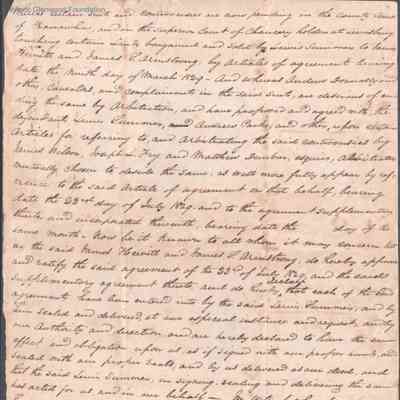 Whereas certain suits and controversies are now pending in the County Court
of Kanawha, and in the Superior Court of Chancery holden at Lewisburg
touching certain salt bargained and sold by Lewis Summers to
Hewitt and James S. Armstrong, by Articles of agreement bearing
date the ninth day of March 1829 - And whereas Andrew Donnally and
others, Cavental, and complainants in the said suit, are desirous of en
ding the same by Arbitration, and have proposed and agreed with the
defendant Lewis Summers, and Andrew Parks, and others, upon certain
Articles for referring to, and Arbitrating the said controversies by
Daniel Wilson, Joseph Fry and Matthew Dunbar, esquires, Arbitrators
mutually chosen to decide the same, as will more fully appear by refe
rence to the said Article of agreement in that behalf, bearing
date the 23rd day of July 1829, and to the agreement supplementary
thereto and incorporated therewith, bearing date the day of the
same month. Now be it known to all whom it may concern that
we the said Hewitt and James S. Armstrong, do hereby approve
and ratify the said agreement of the 23rd of July 1829, and the said
Supplementary agreement thereto and do hereby declare that each of the said
agreements have been entered into by the said Lewis Summers, and by
him sealed and delivered, at our especial instance and request, and by
our Authority and direction and are hereby declared to have the same
effect and obligation upon us as if signed with our proper hands, and
sealed with our proper seals, and by us delivered as our deed, and
that the said Lewis Summers, in signing, sealing and delivering the same
has acted for us and in our behalf